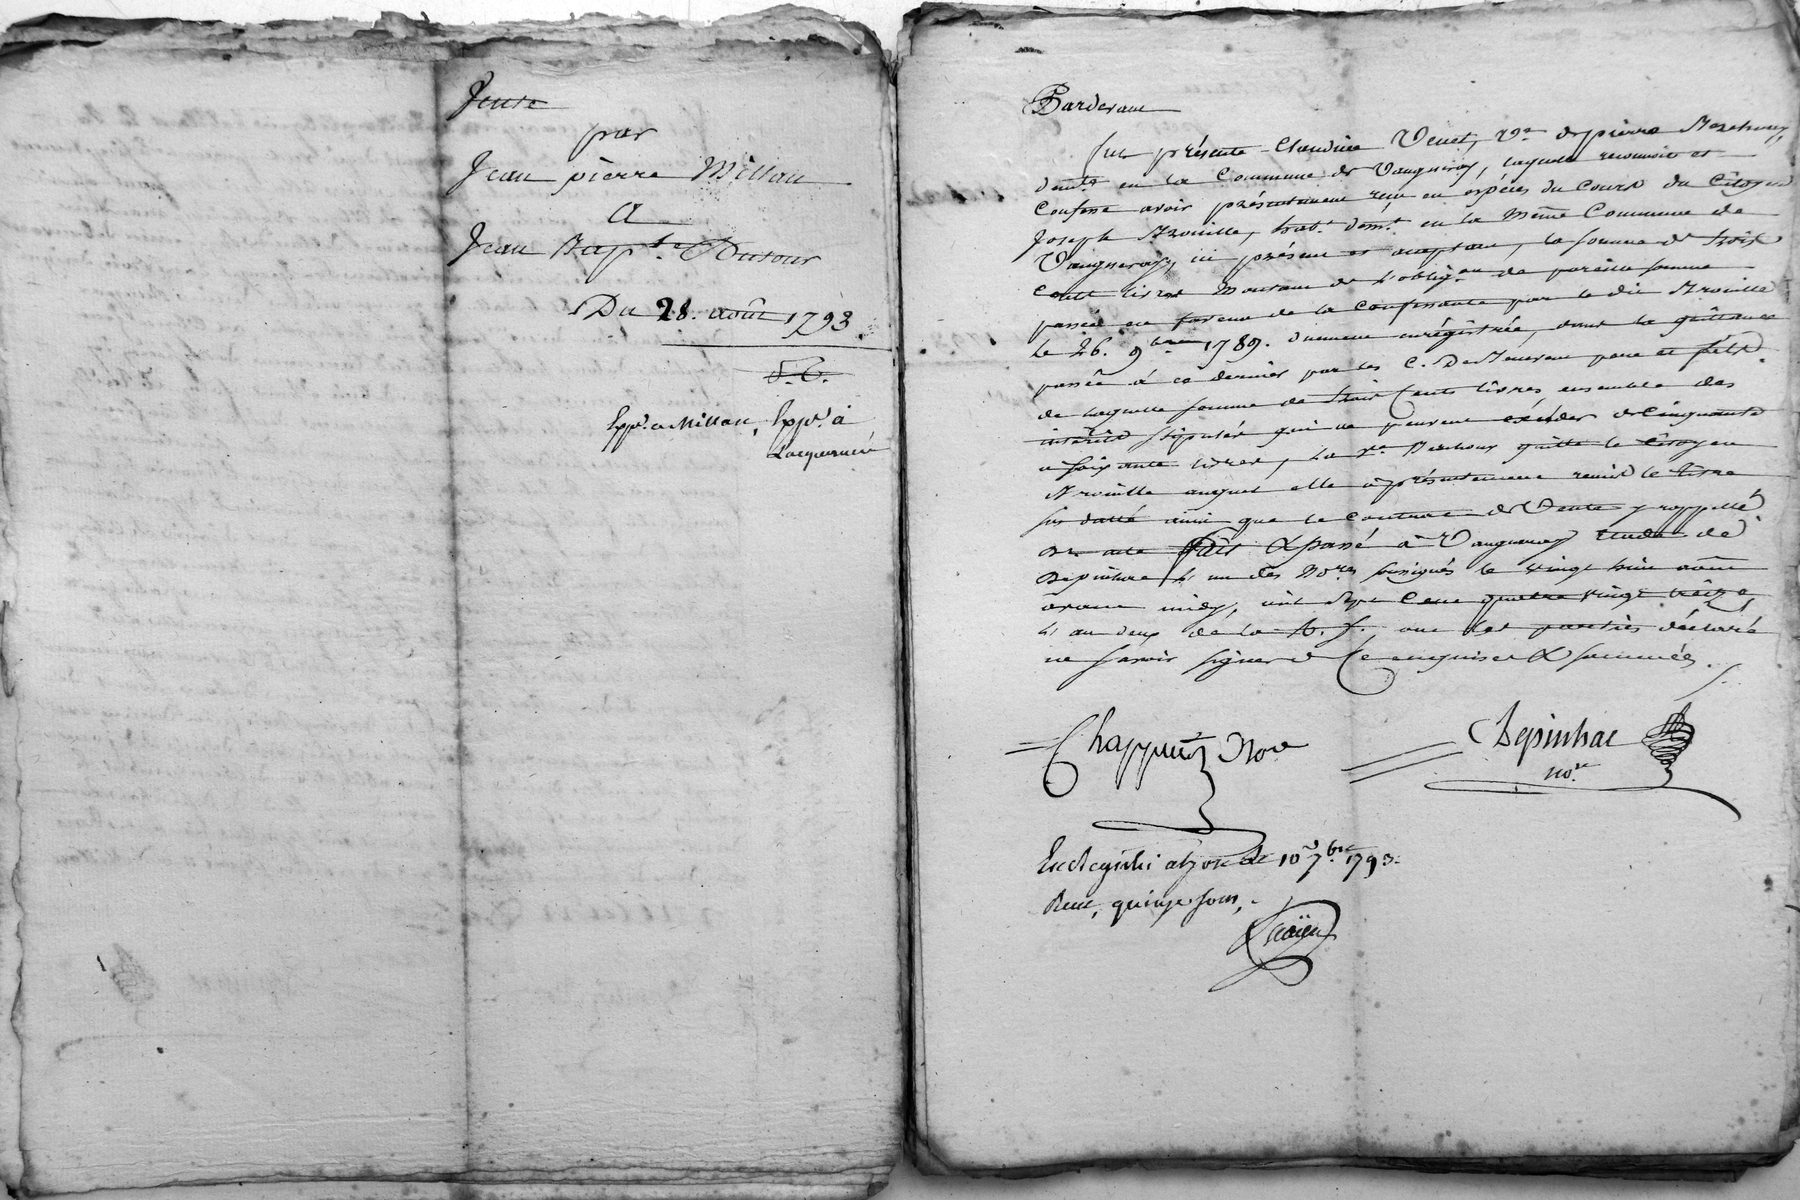 Vente
par
Jean pierre Millan
A
Jean Bapte. Dutour
Du 28. août 1793.
Exp. a Millan, Exp. à
L'acquereur
Pardevant
fut présente Claudine Venet, Ve. de pierre
demte. en la Commune de Vaugneray, laquelle reconnoit et
Confesse avoir présentement reçu en espèces du Cours du Citoyen
Joseph habt. demt. en la même Commune de
Vaugneray, ici présent et acceptant, la somme de trois
Cent livres Montant de l'obligon. de pareille somme
passée en faveur de la Confessante par le dit
le 26. 9bre 1789. duement enrégistrée, dont la quittance
passée à ce dernier par les C. De
de laquelle somme de trois Cents livres ensemble des
intérêts stipulés qui ne peuvent excéder de Cinquante
a soixante livres, la Ve. quitte le Citoyen
auquel elle a présentement remis le titre
sus datté ainsi que le Contrat de Vente y rappellé.
Dt. acte fait & passé à Vaugneray Etude de
Depinhac l'un des Nores. soussignés le vingt huit août
avant midy, mil sept Cent quatre vingt treize,
l'an deux de la R. f. ont les parties déclaré
ne savoir signer de Ce enquises & sommées.
Chappuis Nore
Depinhac
nore
Enregistré à le 10 7bre 1793.
Reçu, quinze sous,